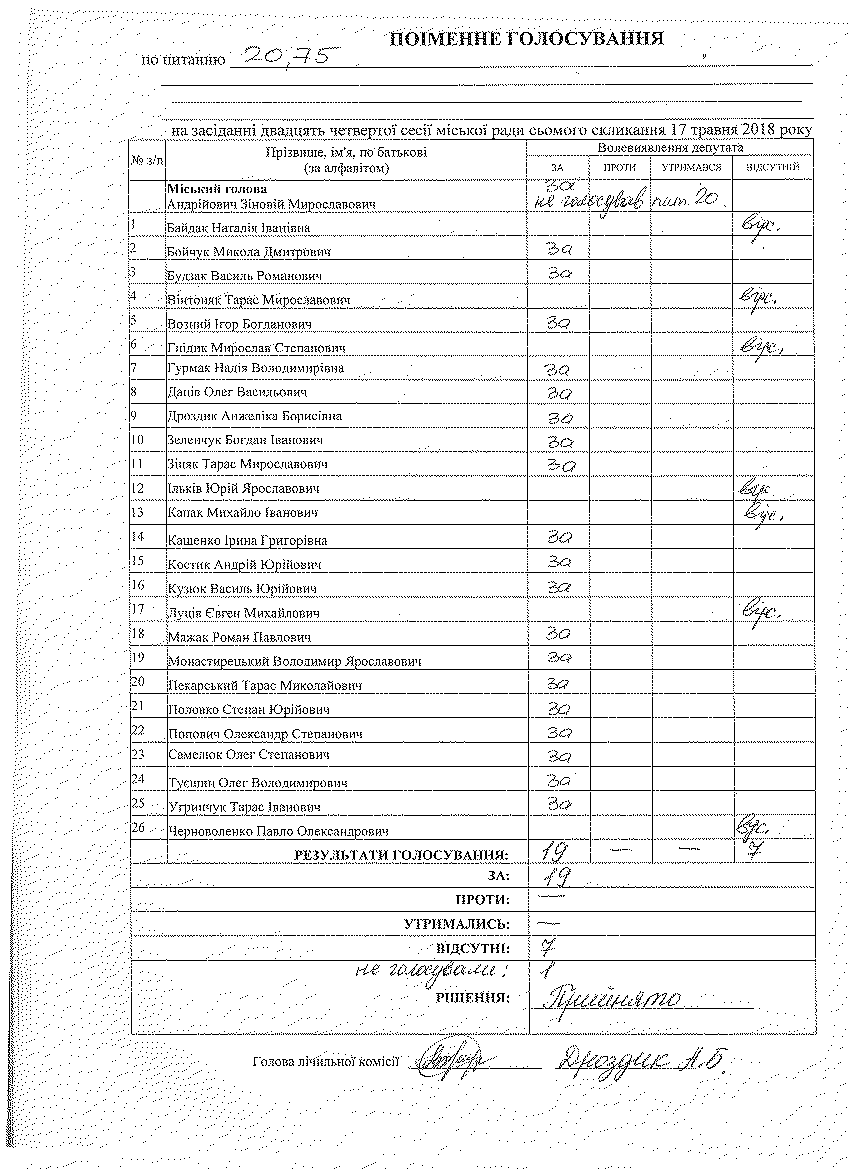 ПОІМЕННЕ ГОЛОСУВАННЯ
по питанню 20,75
на засіданні двадцять четвертої сесії міської ради сьомого скликання 17 травня 2018 року
№ з/п Прізвище, ім'я, по батькові (за алфавітом) Волевиявлення депутата
ЗА ПРОТИ УТРИМАВСЯ ВІДСУТНІЙ
Міський голова за
Андрійович Зіновій Мирославович не голосував пит. 20.
1 Байдак Наталія Іванівна відс.
2 Бойчук Микола Дмитрович за
3 Будзак Василь Романович за
4 Вінтоняк Тарас Мирославович відс.
5 Возний Ігор Богданович за
6 Гнідик Мирослав Степанович відс.
7 Гурмак Надія Володимирівна за
8 Даців Олег Васильович за
9 Дроздик Анжеліка Борисівна за
10 Зеленчук Богдан Іванович за
11 Зіняк Тарас Мирославович за
12 Ільків Юрій Ярославович відс
13 Капак Михайло Іванович відс.
14 Кашенко Ірина Григорівна за
15 Костик Андрій Юрійович за
16 Кузюк Василь Юрійович за
17 Луців Євген Михайлович відс.
18 Мажак Роман Павлович за
19 Монастирецький Володимир Ярославович за
20 Пекарський Тарас Миколайович за
21 Половко Степан Юрійович за
22 Попович Олександр Степанович за
23 Самелюк Олег Степанович за
24 Туєшин Олег Володимирович за
25 Угринчук Тарас Іванович за
26 Черноволенко Павло Олександрович відс.
РЕЗУЛЬТАТИ ГОЛОСУВАННЯ: 19 — — 7
ЗА: 19
ПРОТИ: —
УТРИМАЛИСЬ: —
ВІДСУТНІ: 7
не голосували: 1
РІШЕННЯ: Прийнято
Голова лічильної комісії Дроздик А.Б.